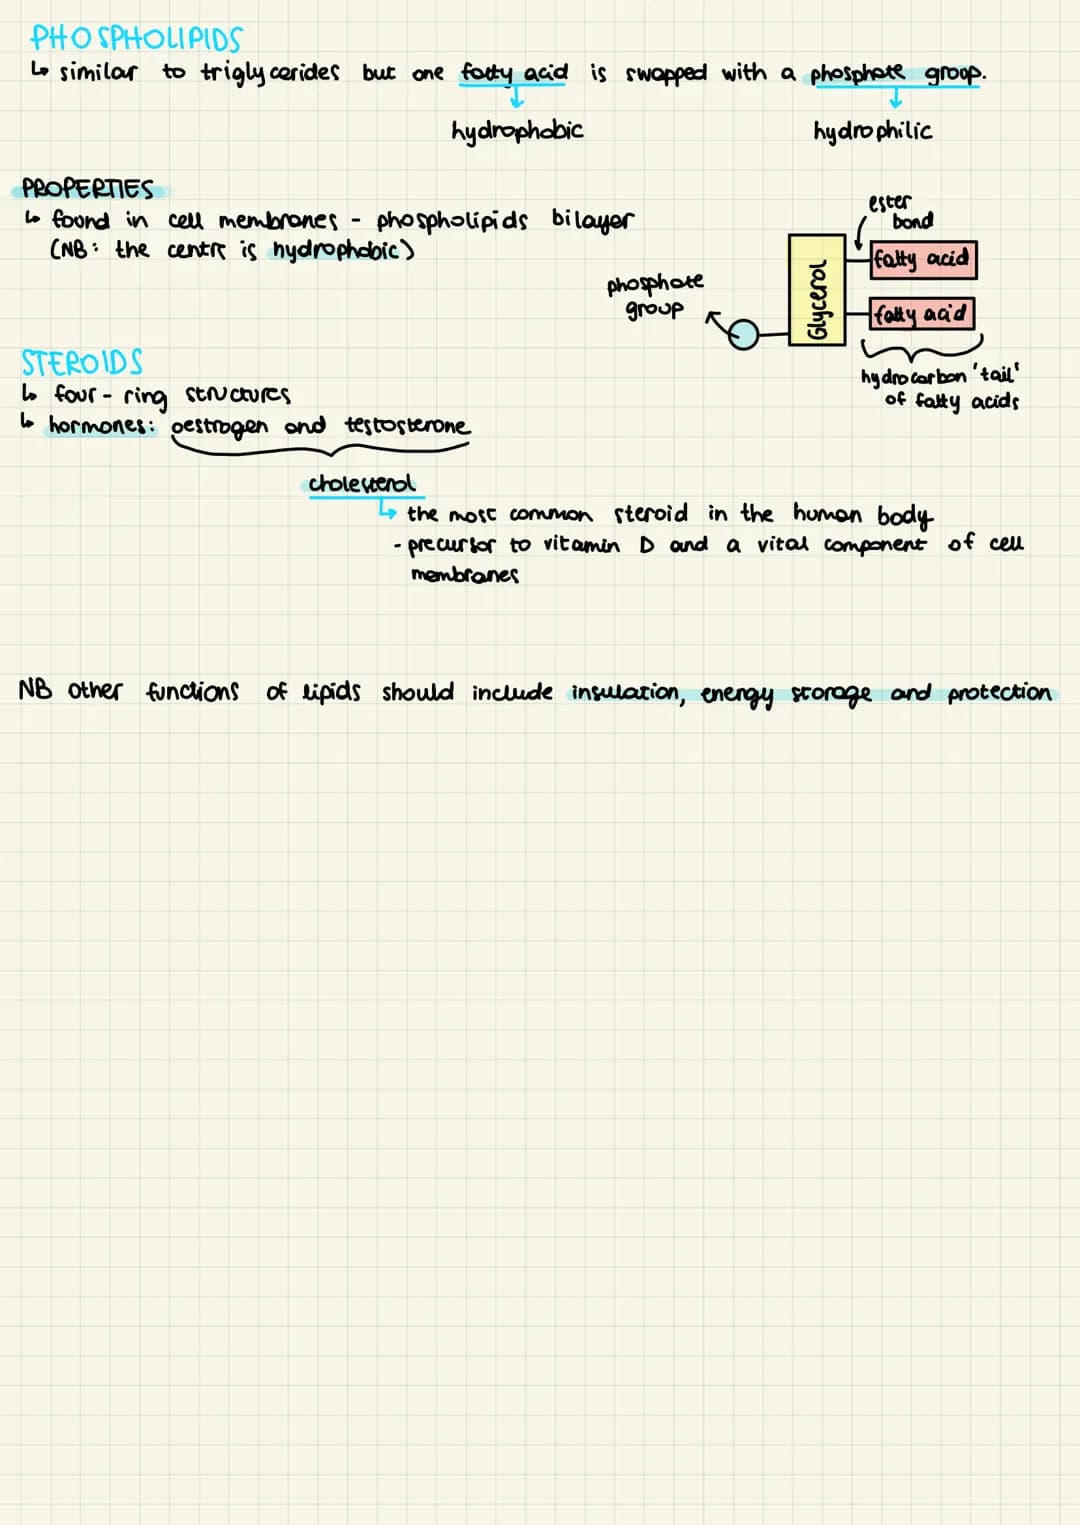 PHOSPHOLIPIDS
↳ similar to triglycerides but one fatty acid is swapped with a phosphate group.
hydrophobic
hydrophilic
PROPERTIES
↳ found in cell membranes - phospholipids bilayer
(NB: the centre is hydrophobic)
ester
bond
fatty acid
Glycerol
phosphate
group
fatty acid
hydrocarbon 'tail'
of fatty acids
STEROIDS
↳ four-ring structures
↳ hormones: oestrogen and testosterone
cholesterol
↳ the most common steroid in the human body
- precursor to vitamin D and a vital component of cell
membranes
NB other functions of lipids should include insulation, energy storage and protection